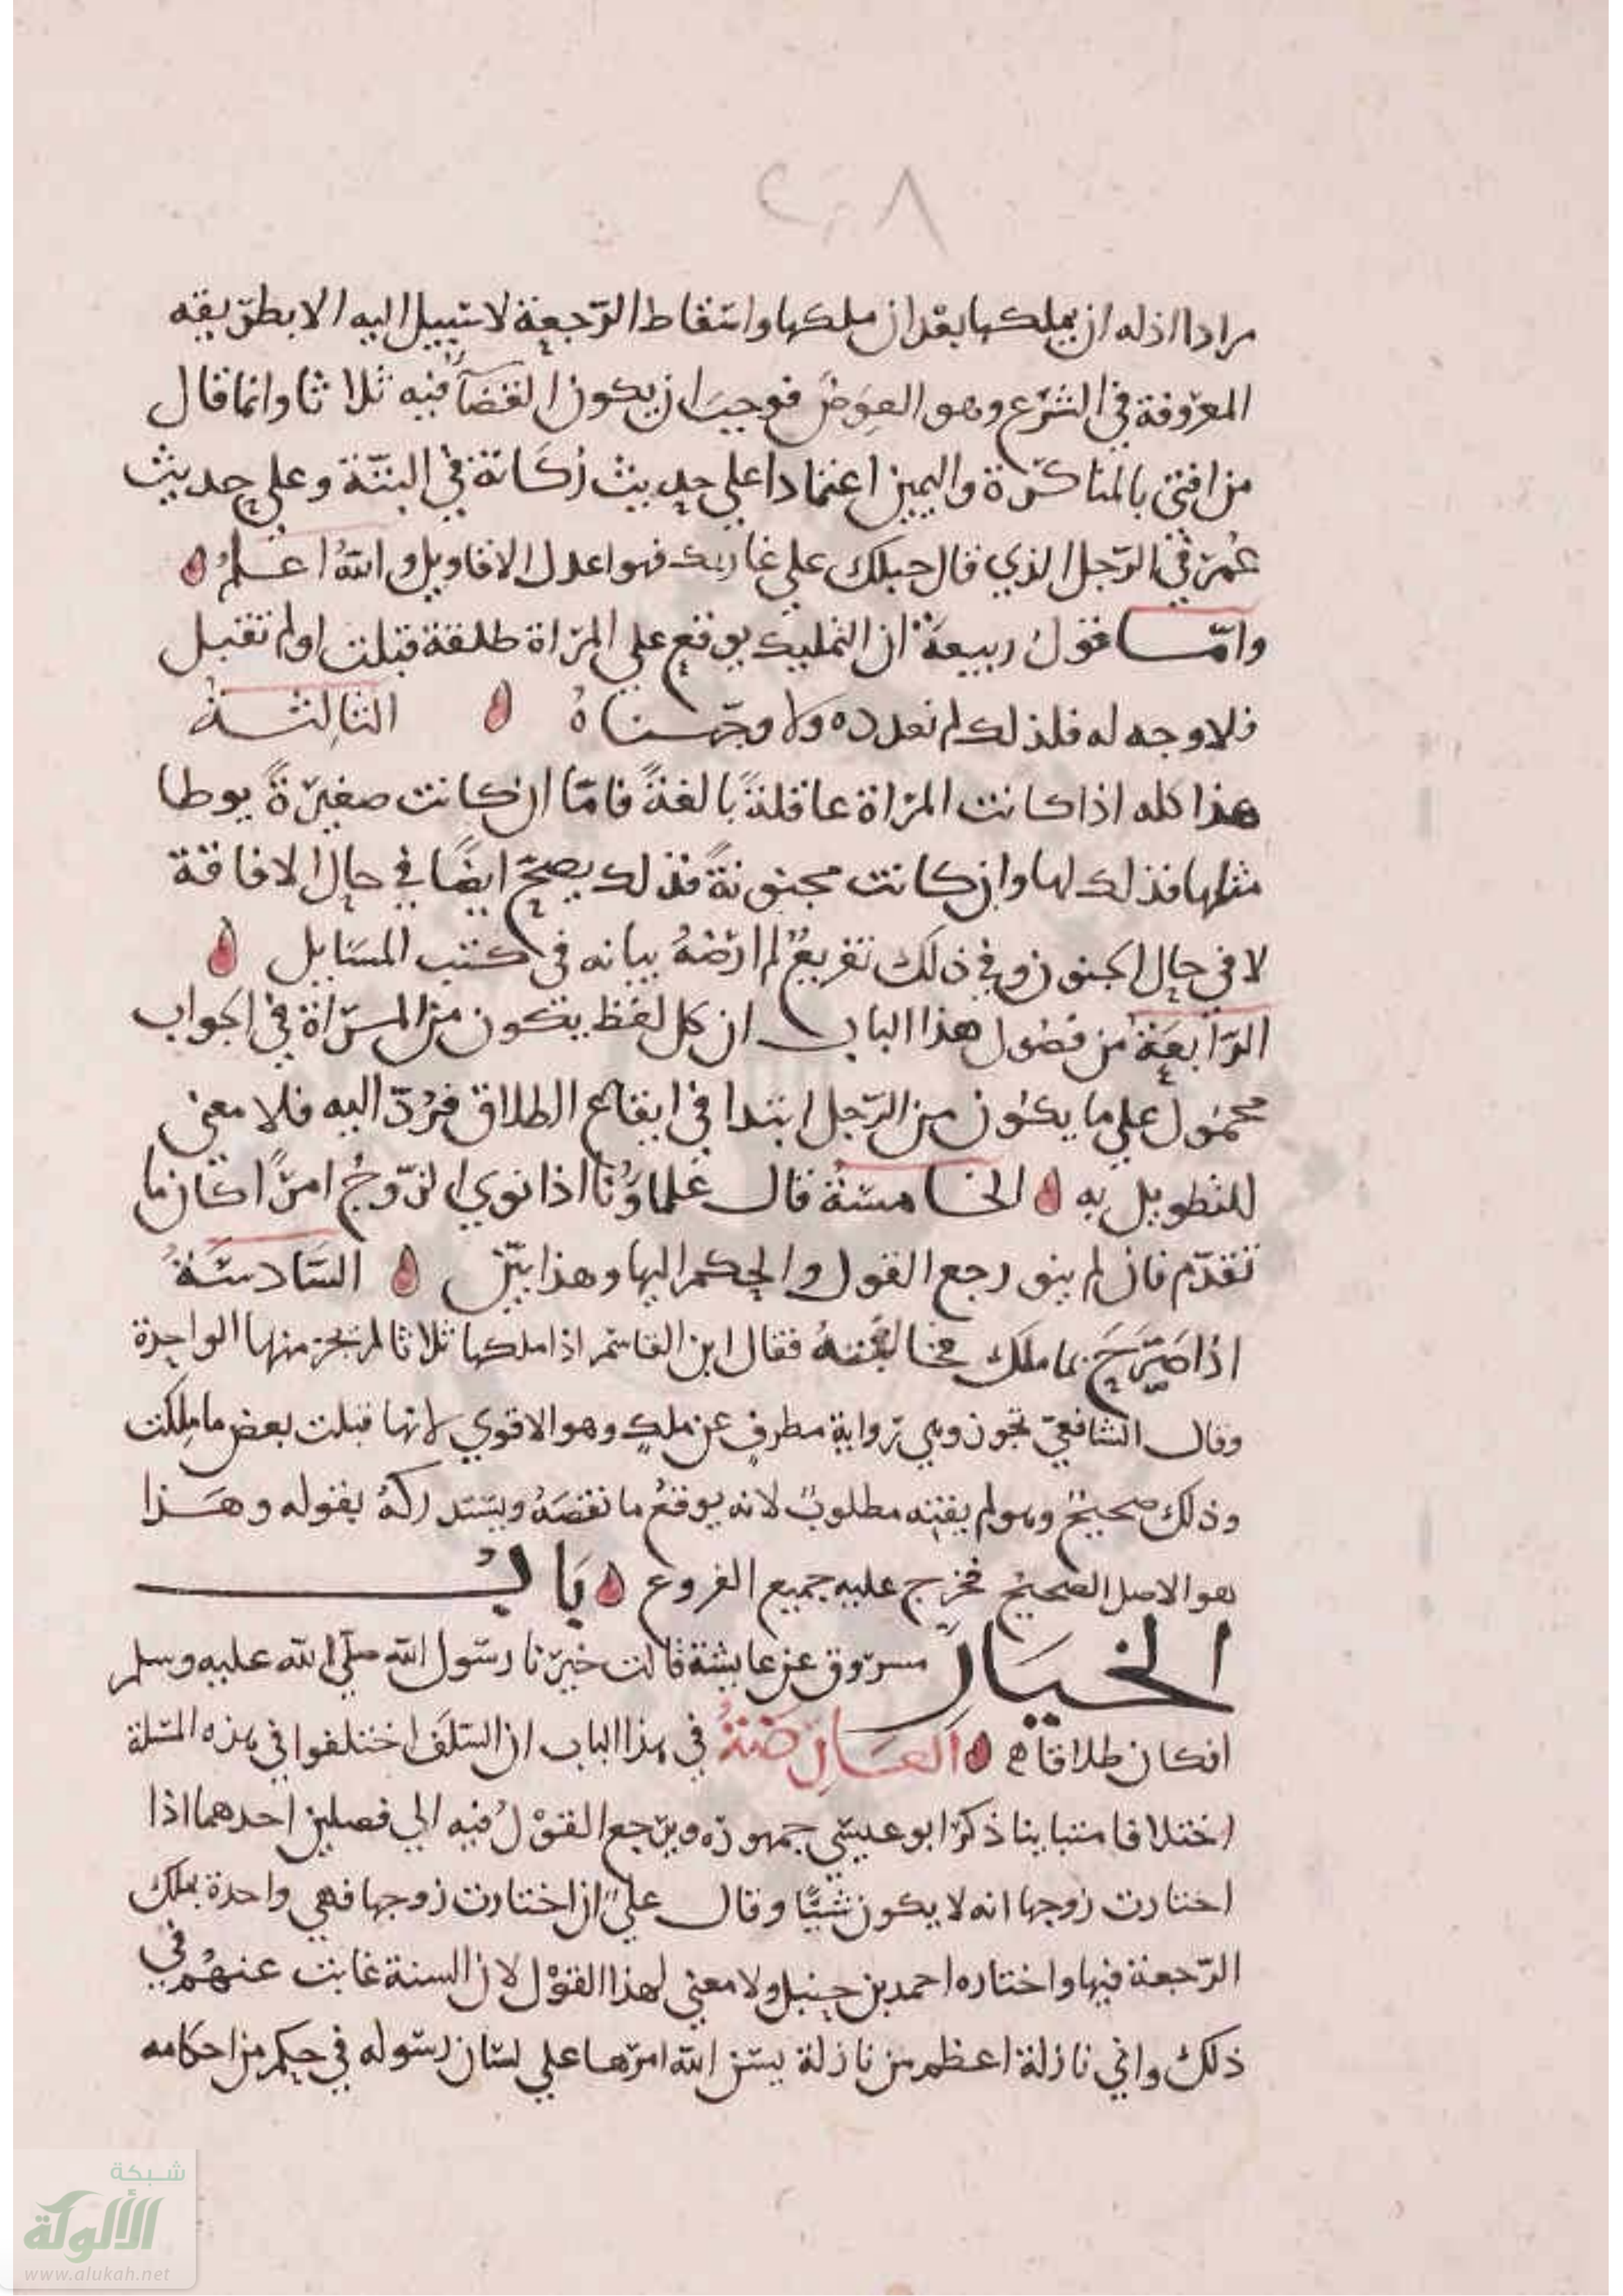 ٢٠٨
مرادا اذ له ان يملكها بعد ان ملكها واسقاط الرجعة لا سبيل اليه الا بطريقه
المعروفة في الشرع وهو العوض فوجب ان يكون القضآ فيه ثلاثا وانما قال
من افتى بالمناكرة واليمين اعتمادا على حديث ركانة في البتة وعلى حديث
عمر في الرجل الذي قال حبلك على غاربك فهو اعدل الاقاويل والله اعلم
واما قول ربيعة ان التمليك يوقع على المراة طلقة قبلت او لم تقبل
فلا وجه له فلذلك لم نعدده ولا وجهناه الثالثة
هذا كله اذا كانت المراة عاقلة بالغة فاما ان كانت صغيرة يوطا
مثلها فذلك لها وان كانت مجنونة فذلك يصح ايضا في حال الافاقة
لا في حال الجنون وفي ذلك تفريع لم ارضه بيانه في كتب المسايل
الرابعة من فصول هذا الباب ان كل لفظ يكون من المراة في الجواب
محمول على ما يكون من الرجل ابتدا في ايقاع الطلاق فرد اليه فلا معنى
للتطويل به الخامسة قال علماؤنا اذا نوى الزوج امرا كان ما
تقدم فان لم ينو رجع القول والحكم اليها وهذا بين السادسة
اذا صرح بما ملك فخالفته فقال ابن القاسم اذا ملكها ثلاثا لم تجز منها الواحدة
وقال الشافعي تجوز وهي رواية مطرف عن ملك وهو الاقوى لانها قبلت بعض ما ملكت
وذلك صحيح وهو لم يفته مطلوب لانه يوقع ما نقصه ويستدركه بقوله وهذا
هو الاصل الصحيح فخرج عليه جميع الفروع باب
الخيار مسروق عن عايشة قالت خيرنا رسول الله صلى الله عليه وسلم
افكان طلاقا العارضة في هذا الباب ان السلف اختلفوا في هذه المسلة
اختلافا متباينا ذكر ابو عيسى جمهوره ويرجع القول فيه الى فصلين احدهما اذا
اختارت زوجها انه لا يكون شيا وقال علي ان اختارت زوجها فهي واحدة يملك
الرجعة فيها واختاره احمد بن حنبل ولا معنى لهذا القول لان السنة غابت عنهم في
ذلك واي نازلة اعظم من نازلة يسن الله امرها على لسان رسوله في حكم من احكامه
شبكة
الألوكة
www.alukah.net